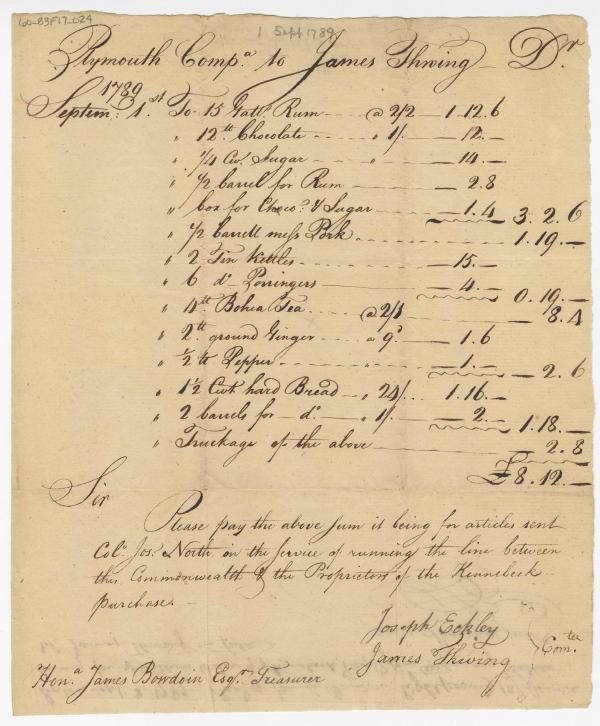 60-83F17-024
1 Sept 1789
Plymouth Compa. to James Thwing Dr
1789
Septem: 1st To 15 Galls. Rum @ 2/2 1.12.6
" 12 lb Chocolate " 1/. 12.
" 1/4 Cwt. Sugar " 14.
" 1/2 barrel for Rum 2.8
" box for Choco. & Sugar 1.4 3.2.6
" 1/2 barrell mess Pork 1.19.
" 2 Tin Kettles 15.
" 6 do Porringers 4. 0.19.
" 4 lb Bohea Tea @ 2/1 8.4
" 2 lb ground Ginger " 9d 1.6
" 1/2 lb Pepper " 1. 2.6
" 1 1/2 Cwt hard Bread " 24/. 1.16.
" 2 barrels for do. " 1/. 2 1.18.
" Truckage of the above 2.8
£8.12.
Sir
Please pay the above sum it being for articles sent
Colo. Jos. North in the service of running the line between
this Commonwealth & the Proprietors of the Kennebeck
purchase.
Joseph Eckley
James Thwing
Comtee
Hona. James Bowdoin Esqr. Treasurer